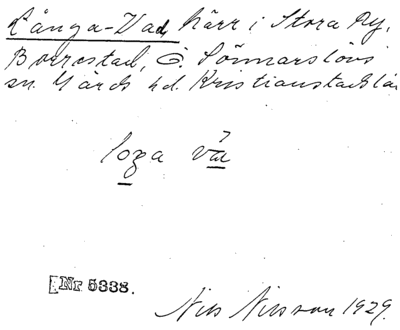 Långa-Vad kärr i Stora Ry,
Borrestad, Ö. Sönnarslövs
sn. Gärds hd. Kristianstads lä
loŋa va
[Nr 5338.
Nils Nilsson 1929.